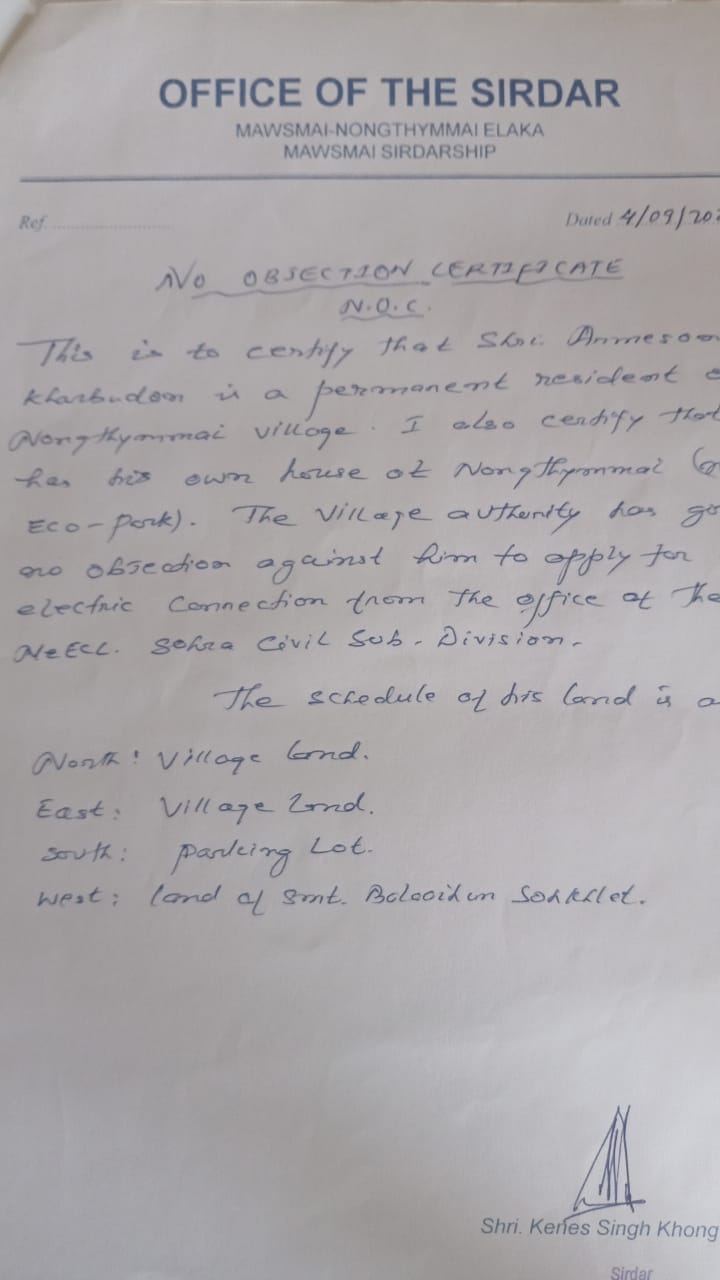 OFFICE OF THE SIRDAR
MAWSMAI-NONGTHYMMAI ELAKA
MAWSMAI SIRDARSHIP
Ref. ........................
Dated 4/09/202
NO OBSECTION CERTIFICATE
N.O.C.
This is to certify that Shri.
Kharbudon is a permanent resident
Nongthymmai village. I also certify that
has his own house at Nongthymmai
Eco-Park). The Village authority has
no obsection against him to apply for
electric Connection from the office of the
NeECL. Sohra Civil Sub-Division.
The schedule of his land is a
North: Village Land.
East: Village Land.
South: Parking Lot.
West: Land of Smt.
Shri. Kenes Singh Khong
Sirdar